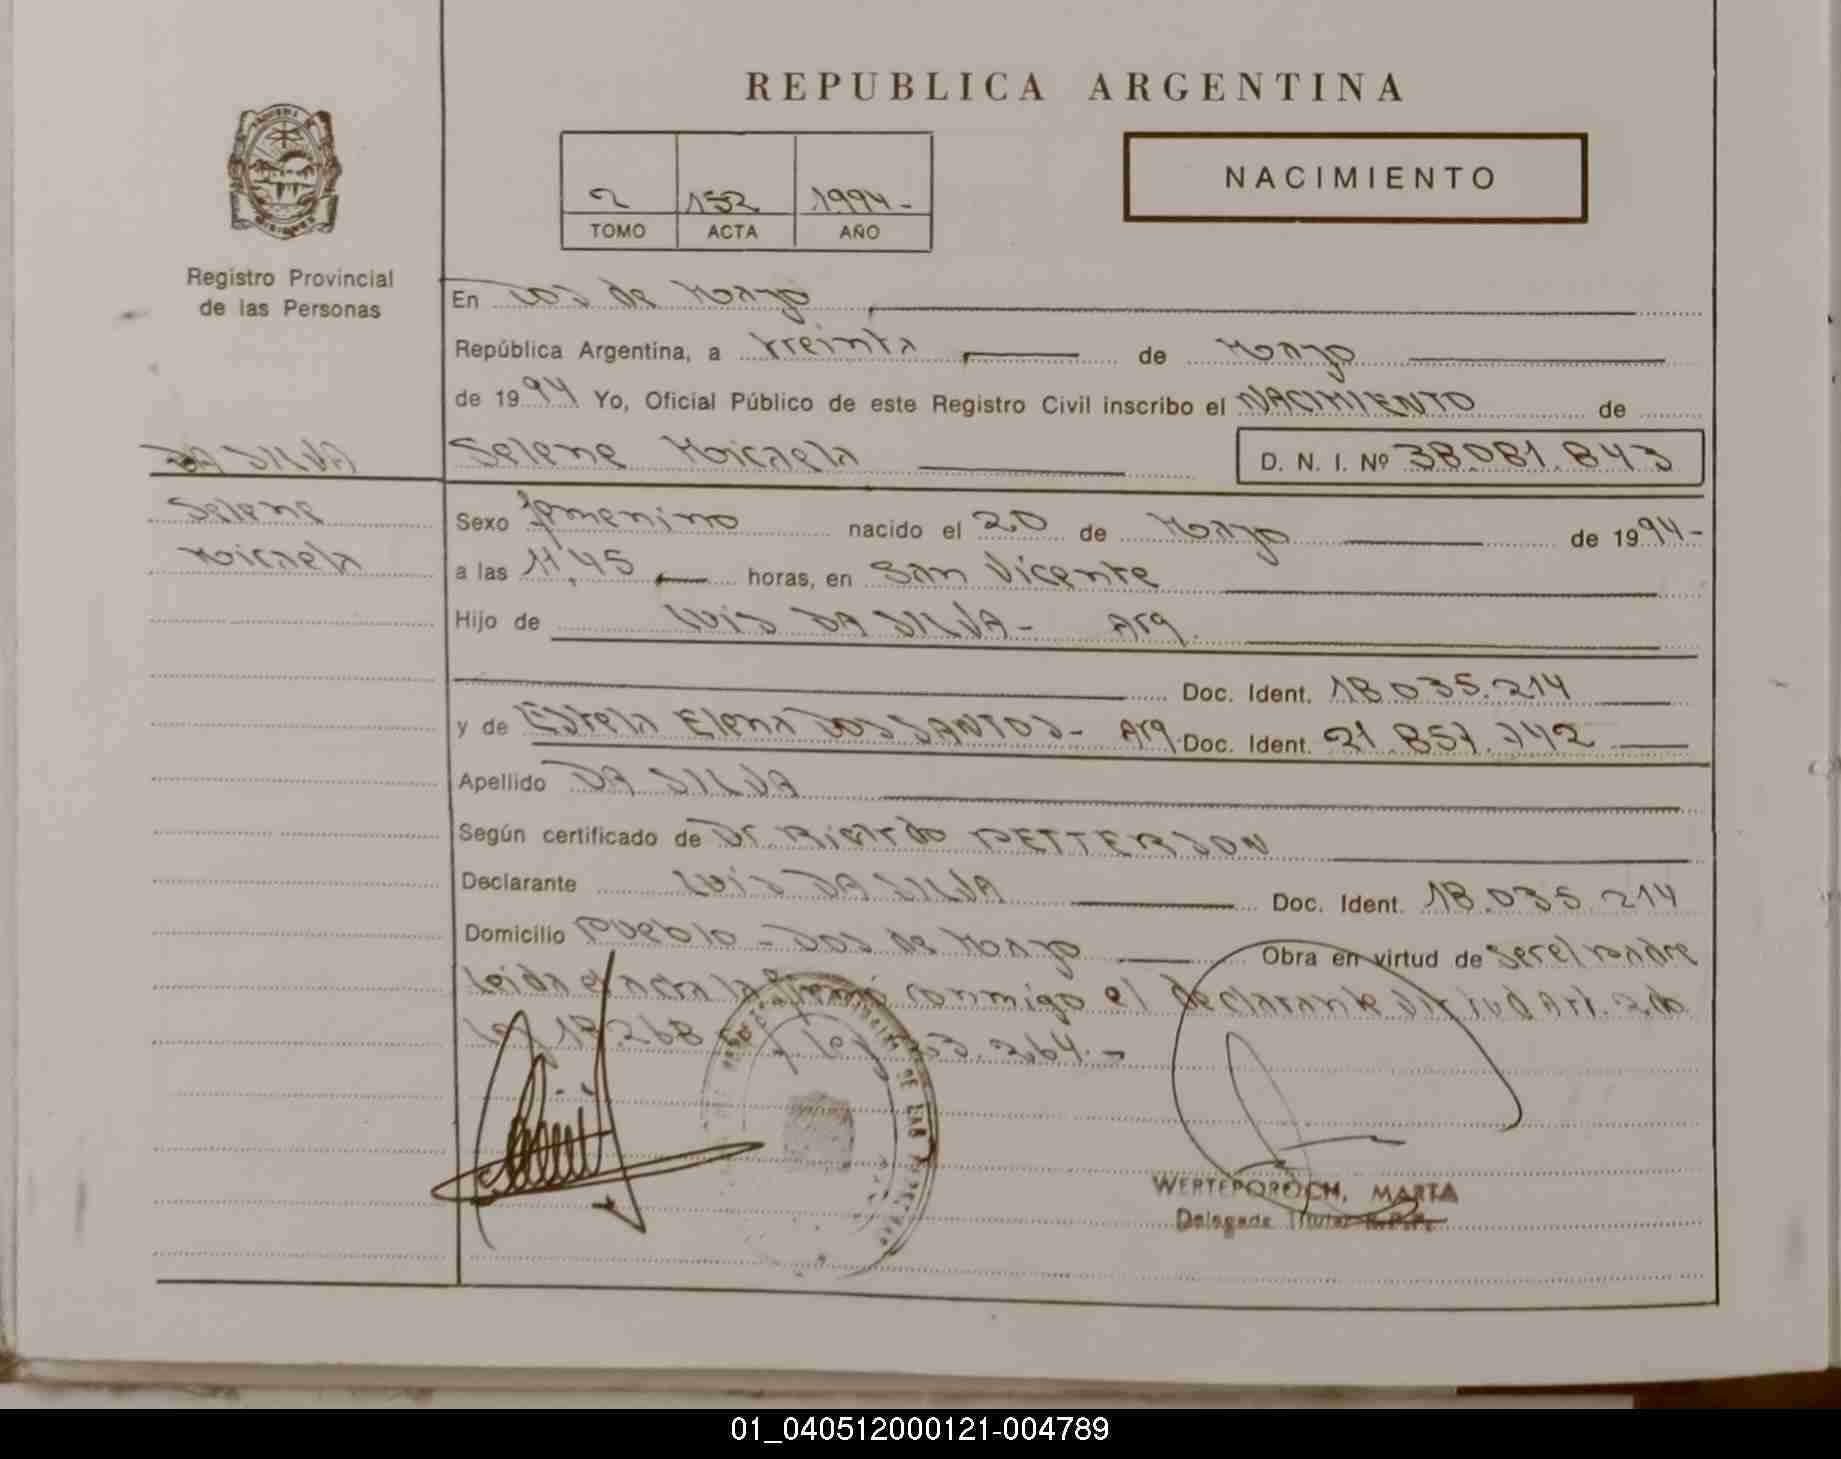 REPUBLICA ARGENTINA
NACIMIENTO
2 152 1994-
TOMO ACTA AÑO
Registro Provincial
de las Personas
En Dos de Mayo
República Argentina, a treinta de Mayo
de 1994 Yo, Oficial Público de este Registro Civil inscribo el NACIMIENTO de
DA SILVA
Selene Micaela D. N. I. Nº 38.081.843
Selene
Micaela
Sexo femenino nacido el 20 de Mayo de 1994-
a las 11,45 horas, en San Vicente
Hijo de Luis DA SILVA- Arg.
Doc. Ident. 18.035.214
y de Estela Elena DOS SANTOS- Arg. Doc. Ident. 21.857.742
Apellido DA SILVA
Según certificado de Dr Ricardo PETTERSON
Declarante Luis DA SILVA Doc. Ident. 18.035.214
Domicilio Pueblo - Dos de Mayo Obra en virtud de ser el padre
Leida el acta la firmó conmigo el declarante Virtud Art. 2do.
Ley 18.268 y Ley 23.264.-
DE LAS PERSONAS
WERTEPOROCH, MARTA
Delegada Titular R.P.P.
01_040512000121-004789